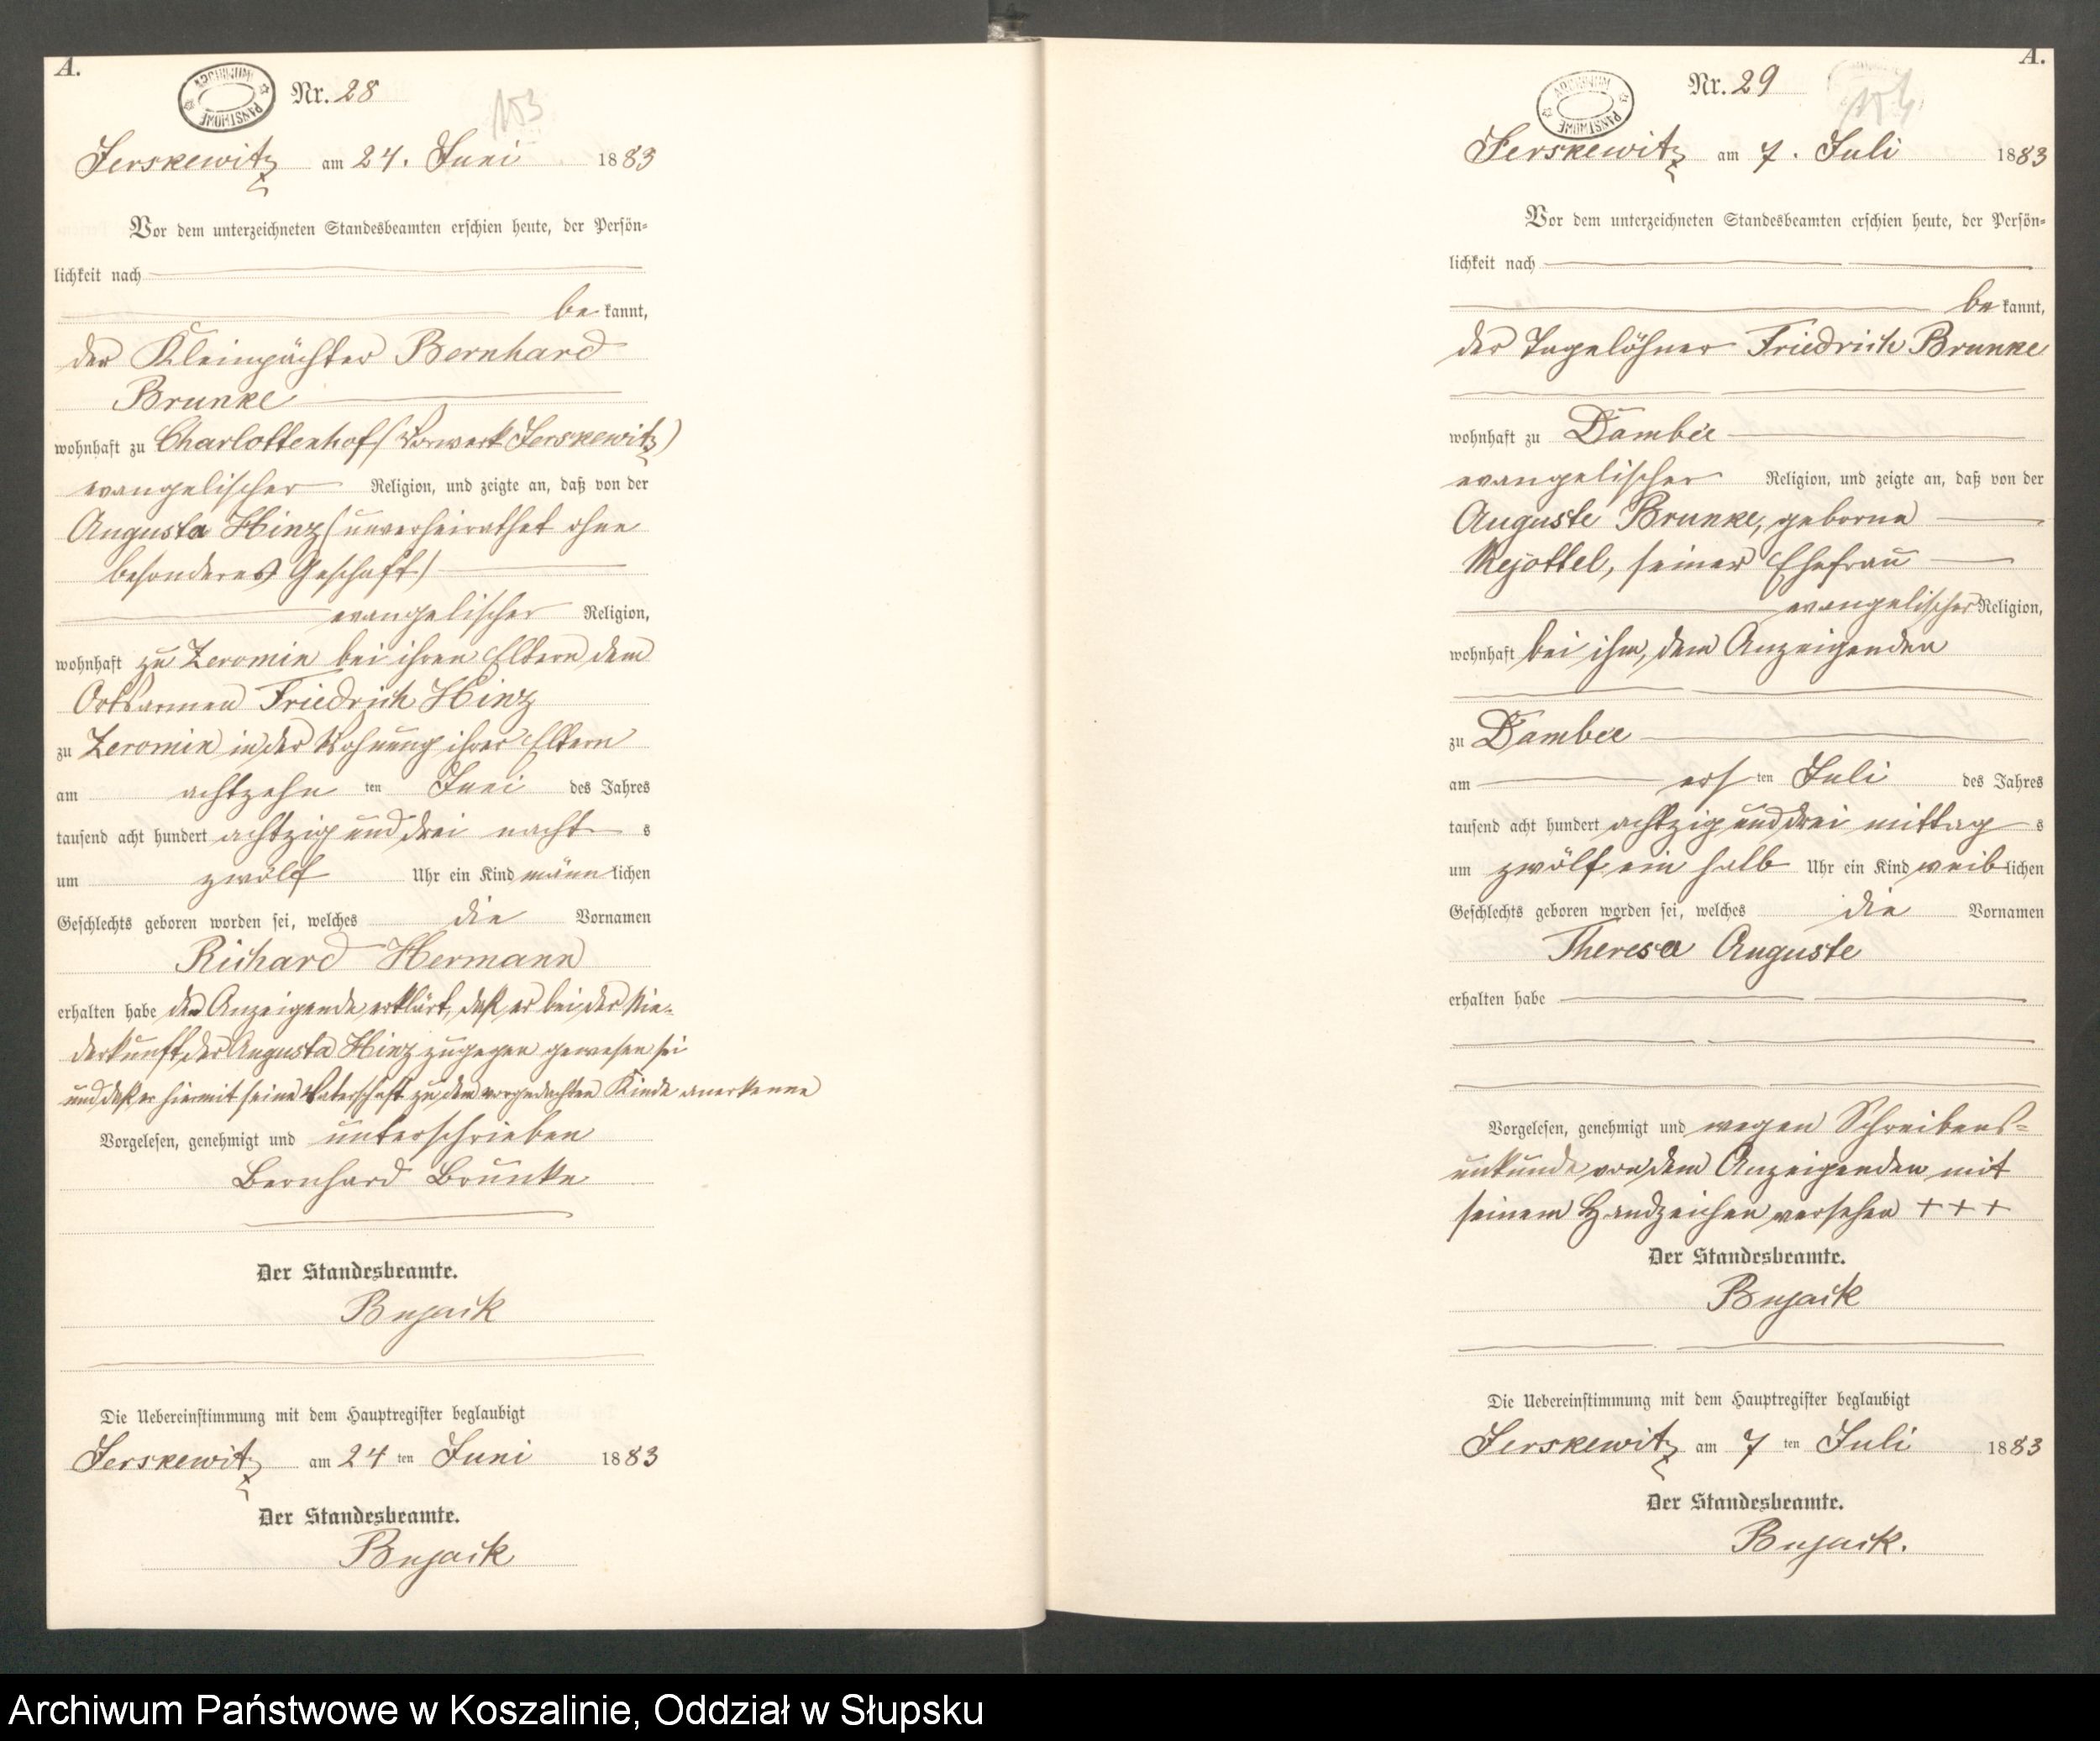 A.
ARCHIWUM PAŃSTWOWE
Nr. 28
153
Jerskewitz am 24. Juni 1883
Vor dem unterzeichneten Standesbeamten erschien heute, der Persön-
lichkeit nach
be kannt,
der Kleinpächter Bernhard
Brunke
wohnhaft zu Charlottenhof (Vorwerk Jerskewitz)
evangelischer Religion, und zeigte an, daß von der
Augusta Hinz (unverheirathet ohne
besonderes Geschäft)
evangelischer Religion,
wohnhaft zu Zeromin bei ihren Eltern dem
Ortsarmen Friedrich Hinz
zu Zeromin in der Wohnung ihrer Eltern
am achtzehn ten Juni des Jahres
tausend acht hundert achtzig und drei nacht s
um zwölf Uhr ein Kind männ lichen
Geschlechts geboren worden sei, welches die Vornamen
Richard Hermann
erhalten habe der Anzeigende erklärt, daß er bei der Nie-
derkunft der Augusta Hinz zugegen gewesen sei
und daß er hiermit seine Vaterschaft zu dem vorgedachten Kinde anerkenne
Vorgelesen, genehmigt und unterschrieben
Bernhard Brunke
Der Standesbeamte.
Bujack
Die Uebereinstimmung mit dem Hauptregister beglaubigt
Jerskewitz am 24 ten Juni 1883
Der Standesbeamte.
Bujack
A.
ARCHIWUM PAŃSTWOWE
Nr. 29
154
Jerskewitz am 7. Juli 1883
Vor dem unterzeichneten Standesbeamten erschien heute, der Persön-
lichkeit nach
be kannt,
der Tagelöhner Friedrich Brunke
wohnhaft zu Dambee
evangelischer Religion, und zeigte an, daß von der
Auguste Brunke, geborne
seiner Ehefrau
evangelischer Religion,
wohnhaft bei ihm, dem Anzeigenden
zu Dambee
am ers ten Juli des Jahres
tausend acht hundert achtzig und drei mittag s
um zwölf ein halb Uhr ein Kind weib lichen
Geschlechts geboren worden sei, welches die Vornamen
Theresa Auguste
erhalten habe
Vorgelesen, genehmigt und wegen Schreibens-
unkunde von dem Anzeigenden mit
seinem Handzeichen versehen +++
Der Standesbeamte.
Bujack
Die Uebereinstimmung mit dem Hauptregister beglaubigt
Jerskewitz am 7 ten Juli 1883
Der Standesbeamte.
Bujack.
Archiwum Państwowe w Koszalinie, Oddział w Słupsku